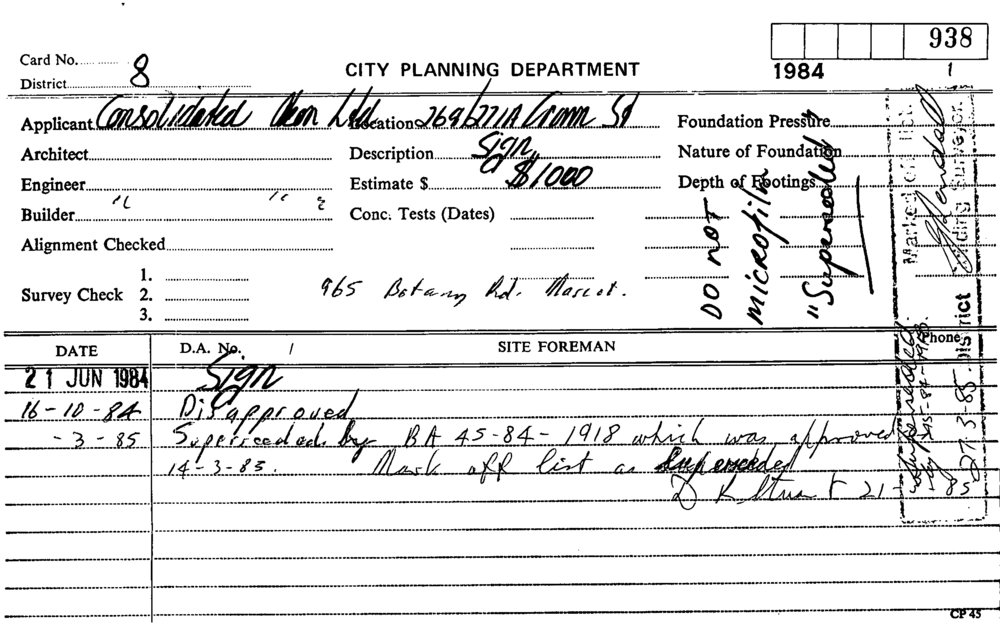 938
Card No. 8
CITY PLANNING DEPARTMENT
1984 1
District
Applicant Consolidated Neon Ltd Location 269/271A Crown St Foundation Pressure
Architect Description Sign Nature of Foundation
Engineer Estimate $ $1000 Depth of Footings
Builder " " " Conc. Tests (Dates)
Alignment Checked
1.
Survey Check 2. 965 Botany Rd. Mascot.
3.
DO NOT
MICROFILM
"Superseded"
Marked on
Building Surveyor
District
27.3.85
Superseded
by 45-84-1918
DATE D.A. No. / SITE FOREMAN Phone
21 JUN 1984 Sign
16-10-84 Disapproved
-3-85 Superceeded by BA 45-84-1918 which was approved
14-3-85. Mark off list as Superceeded
D K Stuart 21-
CP 45